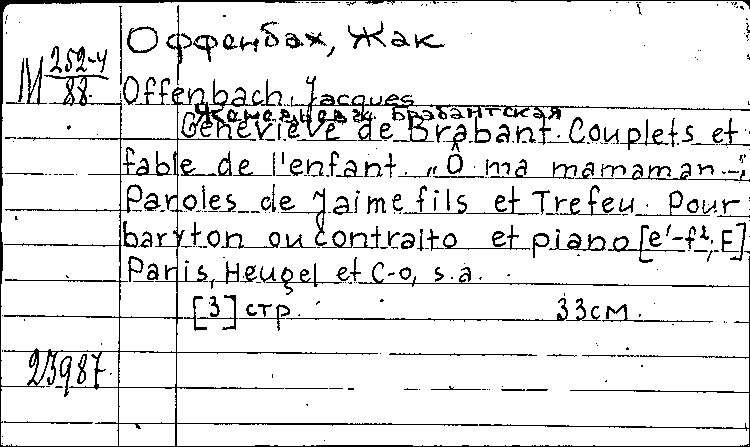 Оффенбах, Жак
М 252-4
88.
Offenbach, Jacques
Женевьева Брабантская
Geneviève de Brabant. Couplets et
fable de l'enfant. „Ô ma mamaman-“
Paroles de Jaime fils et Trefeu. Pour
baryton ou contralto et piano [e'-f²; F]
Paris, Heugel et C-o, s.a.
[3] стр. 33см.
23987